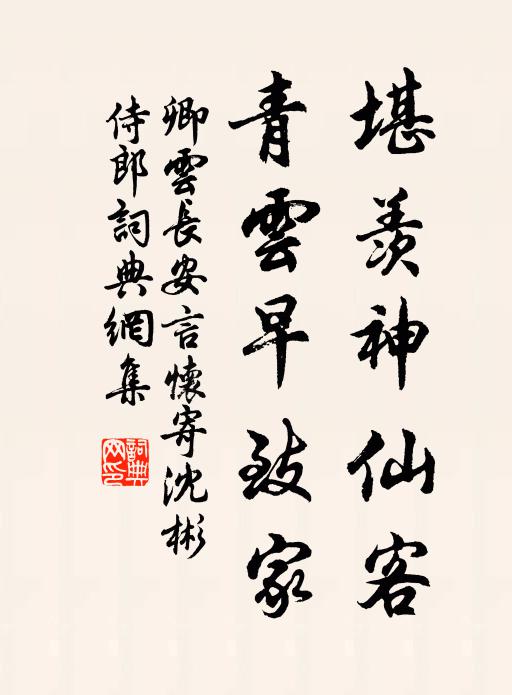 堪羡神仙客
青雲早致家
卿雲長安言懷寄沈彬
侍郎詞典網集
詞典
网印